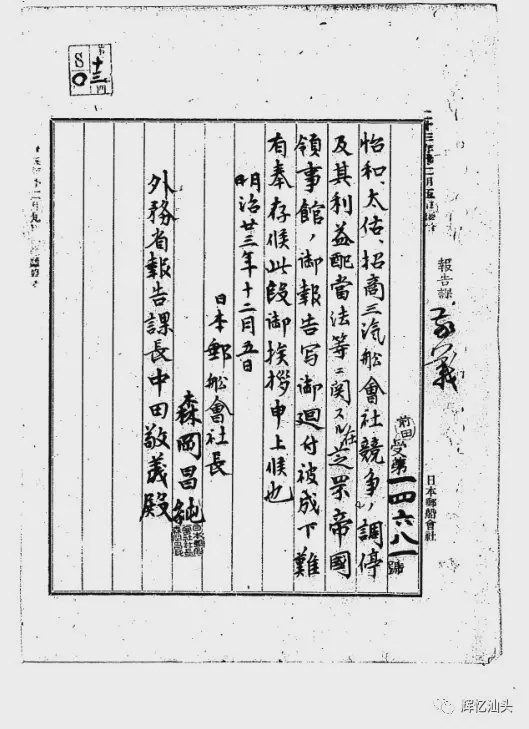 十三
80
報告課
前田
受第一四六八一號
日本郵船會社
怡和、太估、招商三汽船會社競爭ノ調停
及其利益配當法等ニ関スル在芝罘帝國
領事館ノ御報告写御迴付被成下難
有奉存候此段御挨拶申上候也
明治廿三年十二月五日
日本郵舩會社長
森岡昌純
外務省報告課長中田敬義殿
辉忆汕头